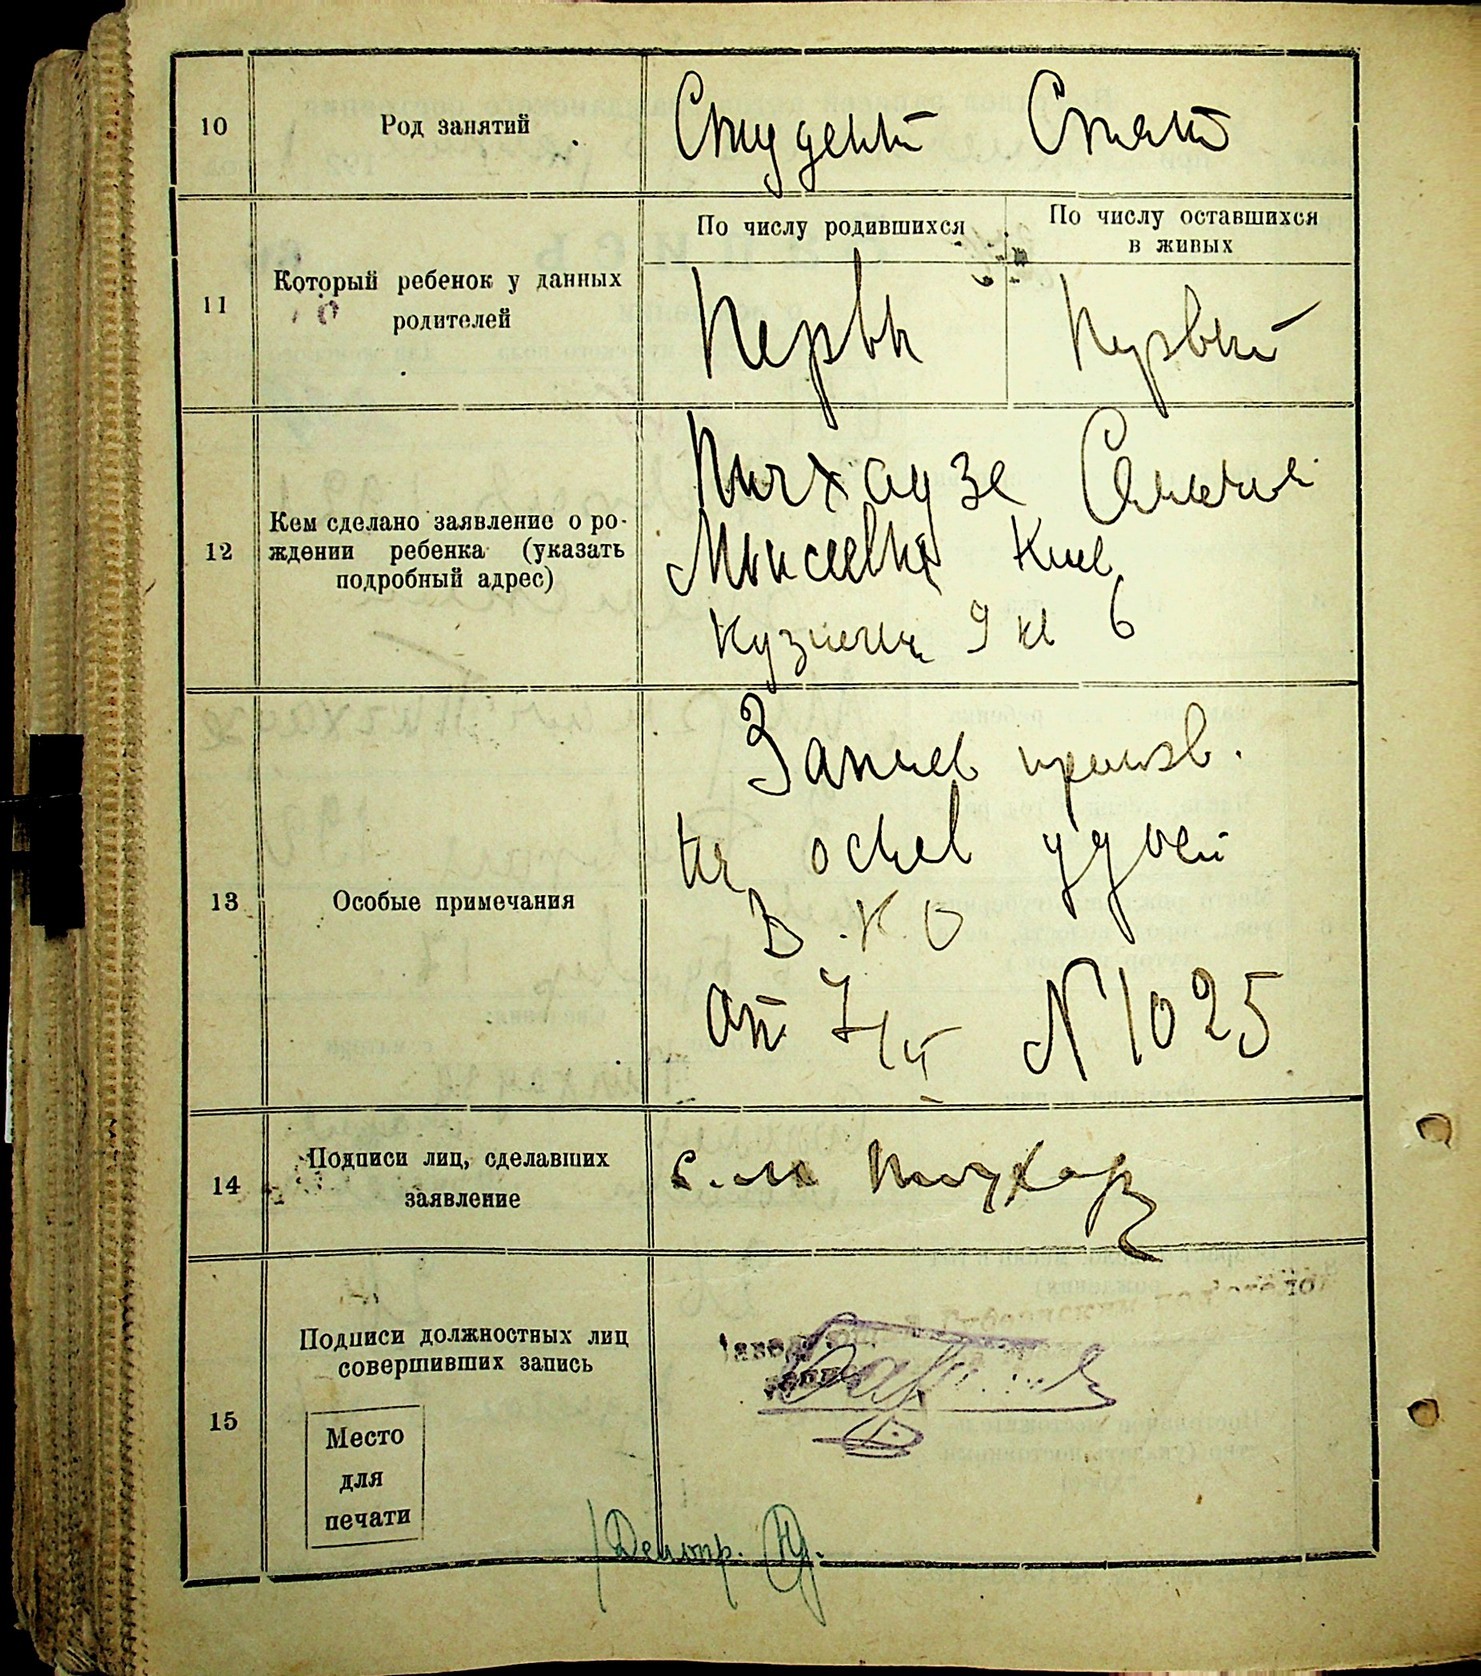 10
Род занятий
Студент
11
Который ребенок у данных
родителей
По числу родившихся
По числу оставшихся
в живых
Первы
Первый
12
Кем сделано заявление о ро-
ждении ребенка (указать
подробный адрес)
Пичхадзе
Моисеевич Киев
Кузнечн 9 кв 6
13
Особые примечания
Запись произв.
на основ удост
В.К.О
от 7/IV N 1025
14
Подписи лиц, сделавших
заявление
С. М. Пичхадзе
15
Подписи должностных лиц
совершивших запись
Место
для
печати